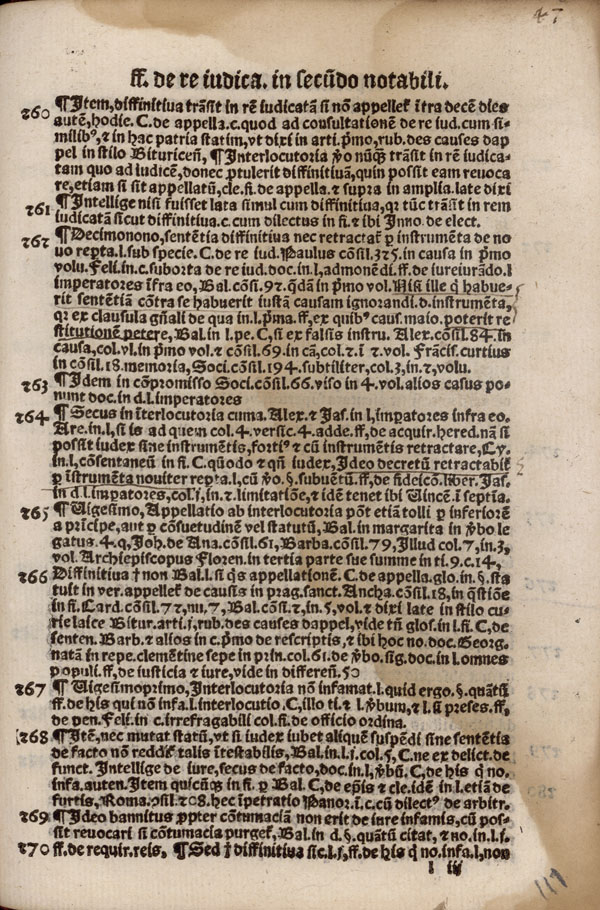 47
ff. de re iudica. in secūdo notabili.
260 ¶ Item, diffinitiua trāsit in rē iudicatā si nō appelleť ītra decē dies
autē, hodie. C. de appella. c. quod ad consultationē de re iud. cum si-
milibꝰ, ⁊ in hac patria statim, vt dixi in arti. pͥmo, rub. des causes dap
pel in stilo Bituriceñ, ¶ Interlocutoria ꝟo nūqꝫ trāsit in rē iudica-
tam quo ad iudicē, donec ꝓtulerit diffinitiuā, quin possit eam reuoca
re, etiam si sit appellatū, cle. fi. de appella. ⁊ supra in amplia. late dixi
261 ¶ Intellige nisi fuisset lata simul cum diffinitiua, qꝛ tūc trāsit in rem
iudicatā sicut diffinitiua. c. cum dilectus in fi. ⁊ ibi Inno. de elect.
262 ¶ Decimonono, sentētia diffinitiua nec retractať ꝑ instrumēta de no
uo repta. l. sub specie. C. de re iud. Paulus cōsil. 325. in causa in pͥmo
volu. Feli. in. c. suborta de re iud. doc. in. l, admonēdi. ff. de iureiurādo. l
imperatores īfra eo, Bal. cōsil. 92. q̄dā in pͥmo vol. Nisi ille q̇ habue-
rit sentētiā cōtra se habuerit iustā causam ignorandi. d. instrumēta,
qꝛ ex clausula gñali de qua in. l. pͥma. ff, ex quibꝰ caus. maio. poterit re
stitutionē petere, Bal. in l. pe. C, si ex falsis instru. Alex. cōsil. 84. in
causa, col. vl. in pͥmo vol. ⁊ cōsil. 69. in cā, col. 2. ī 2. vol. Frācis. curtius
in cōsil. 18. memoria, Soci. cōsil. 194. subtiliter, col. 3, in. 2, volu.
263 ¶ Idem in cōpromisso Soci. cōsil. 66. viso in 4. vol. alios casus po-
nunt doc. in d. l. imperatores
264 ¶ Secus in īterlocutoria cuma. Alex. ⁊ Jas. in l, imꝑatores infra eo.
Are. in. l, si is ad quem col. 4. versic. 4. adde. ff, de acquir. hered. nā si
possit iudex sine instrumētis, fortiꝰ ⁊ cū instrumētis retractare, Cy.
in. l, cōsentaneū in fi. C. quōdo ⁊ qñ iudex, Ideo decretū retractabiť
ꝑ īstrumēta nouiter repta. l, cū ꝟo. §. subuētū. ff, de fideicō. liber. Jas.
in d. l. imꝑatores, col. j, in. 2. limitatiōe, ⁊ idē tenet ibi Uincē. i septīa.
265 ¶ Uigesimo, Appellatio ab interlocutoria pōt etiā tolli ꝑ inferiorē
a prīcipe, aut ꝑ cōsuetudinē vel statutū, Bal. in margarita in ꝟbo le
gatus. 4. q, Joh. de Ana. cōsil. 61, Barba. cōsil. 79, Illud col. 7, in. 3,
vol. Archiepiscopus Floren. in tertia parte sue summe in ti. 9. c. 14,
266 Diffinitiua †non Bal. l. si q̇s appellationē. C. de appella. glo. in. §. sta
tuit in ver. appelleť de causis in prag. sanct. Ancha. cōsil. 18, in q̄stiōe
in fi. Card. cōsil. 72, nu, 7, Bal. cōsi. 2, in. 5, vol. ⁊ dixi late in stilo cu-
rie laice Bitur. arti. j, rub. des causes dappel, vide tñ glos. in l. fi. C, de
senten. Barb. ⁊ alios in c. pͥmo de rescriptis, ⁊ ibi hoc no. doc. Georg.
natā in repe. clemētine sepe in prin. col. 61. de ꝟbo. sig. doc. in l. omnes
populi. ff, de iusticia ⁊ iure, vide in differeñ. 50
267 ¶ Uigesimoprimo, Interlocutoria nō infamat. l. quid ergo. §. quātū
ff. de his qui nō infa. l. interlocutio. C, illo ti. ⁊ l. ꝟbum, ⁊ l. si preses. ff,
de pen. Feli. in c. irrefragabili col. fi. de officio ordina.
268 ¶ Itē, nec mutat statū, vt si iudex iubet aliquē suspēdi sine sentētia
de facto nō reddiť talis ītestabilis, Bal. in. l. j. col. 5, C. ne ex delict. de
funct. Intellige de iure, secus de facto, doc. in. l, ꝟbū, C, de his q̇ no.
infa. auten. Item quicūqꝫ in fi. ꝑ Bal. C, de epīs ⁊ cle. idē in l. etiā de
furtis, Roma. ꝯsil. 208. hec īpetratio Panor. ī. c. cū dilectꝰ de arbitr.
269 ¶ Ideo bannitus ꝓpter cōtumaciā non erit de iure infamis, cū pos-
sit reuocari si cōtumacia purgeť, Bal. in d. §. quātū citat, ⁊ no. in. l. s.
270 ff. de requir. reis. ¶ Sed † diffinitiua sic. l. s, ff. de his q̇ no. infa. l, non
l iij
117